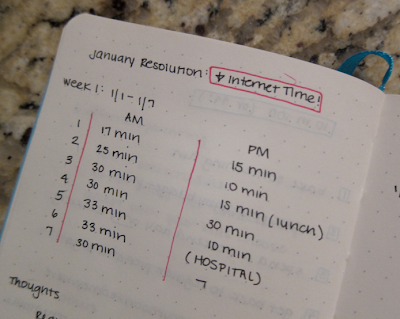 January Resolution: ↓ Internet Time!
Week 1: 1/1 - 1/7
AM PM
1 17 min 15 min
2 25 min 10 min
3 30 min 15 min (lunch)
4 30 min 30 min
5 33 min 10 min
6 33 min (HOSPITAL)
7 30 min 7
Thoughts